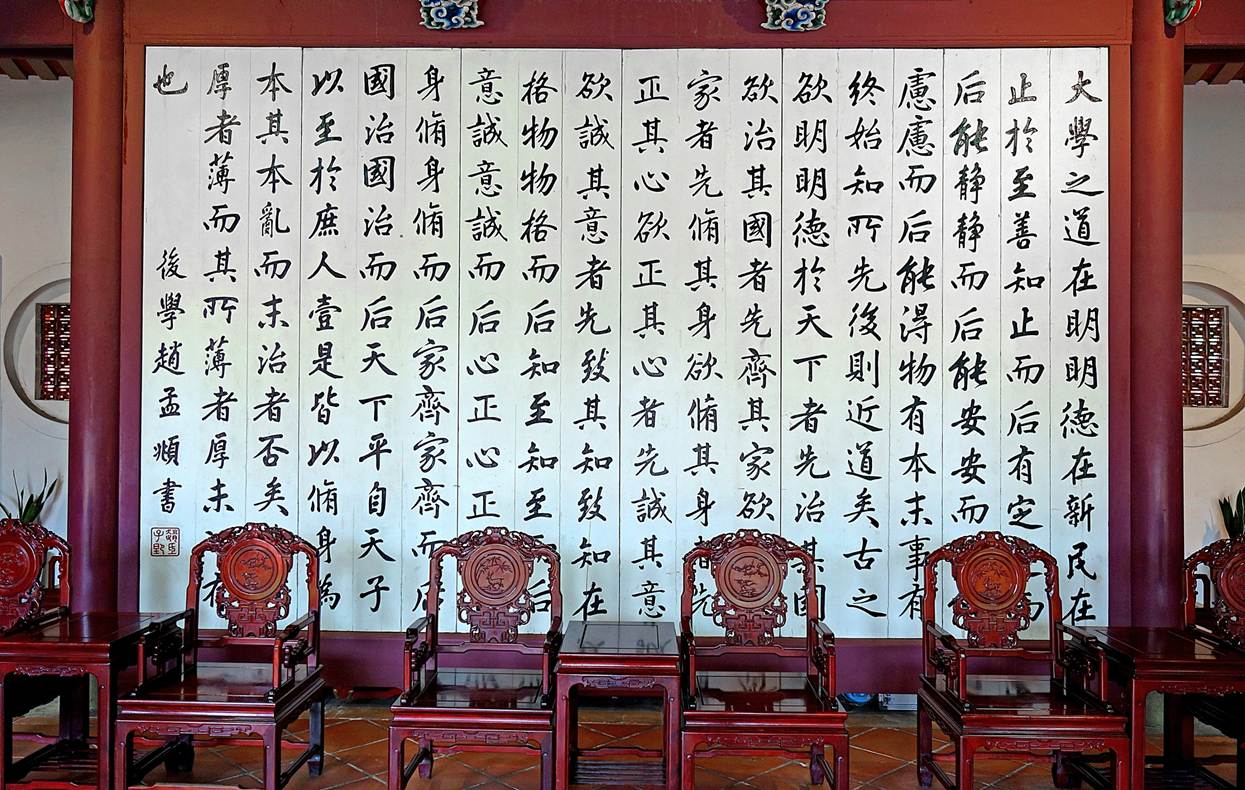 大學之道在明明德在新民在
止於至善知止而后有定而
后能静静而后能安安而
慮慮而后能得物有本末事有
終始知所先後則近道矣古之
欲明明德於天下者先治其國
欲治其國者先齊其家欲
家者先脩其身欲脩其身者先
正其心欲正其心者先誠其意
欲誠其意者先致其知致知在
格物物格而后知至知至而后
意誠意誠而后心正心正
身脩身脩而后家齊家齊而后
國治國治而后天下平自天子
以至於庶人壹是皆以脩身為
本其本亂而末治者否矣
厚者薄而其所薄者厚未有
也
後學趙孟頫書